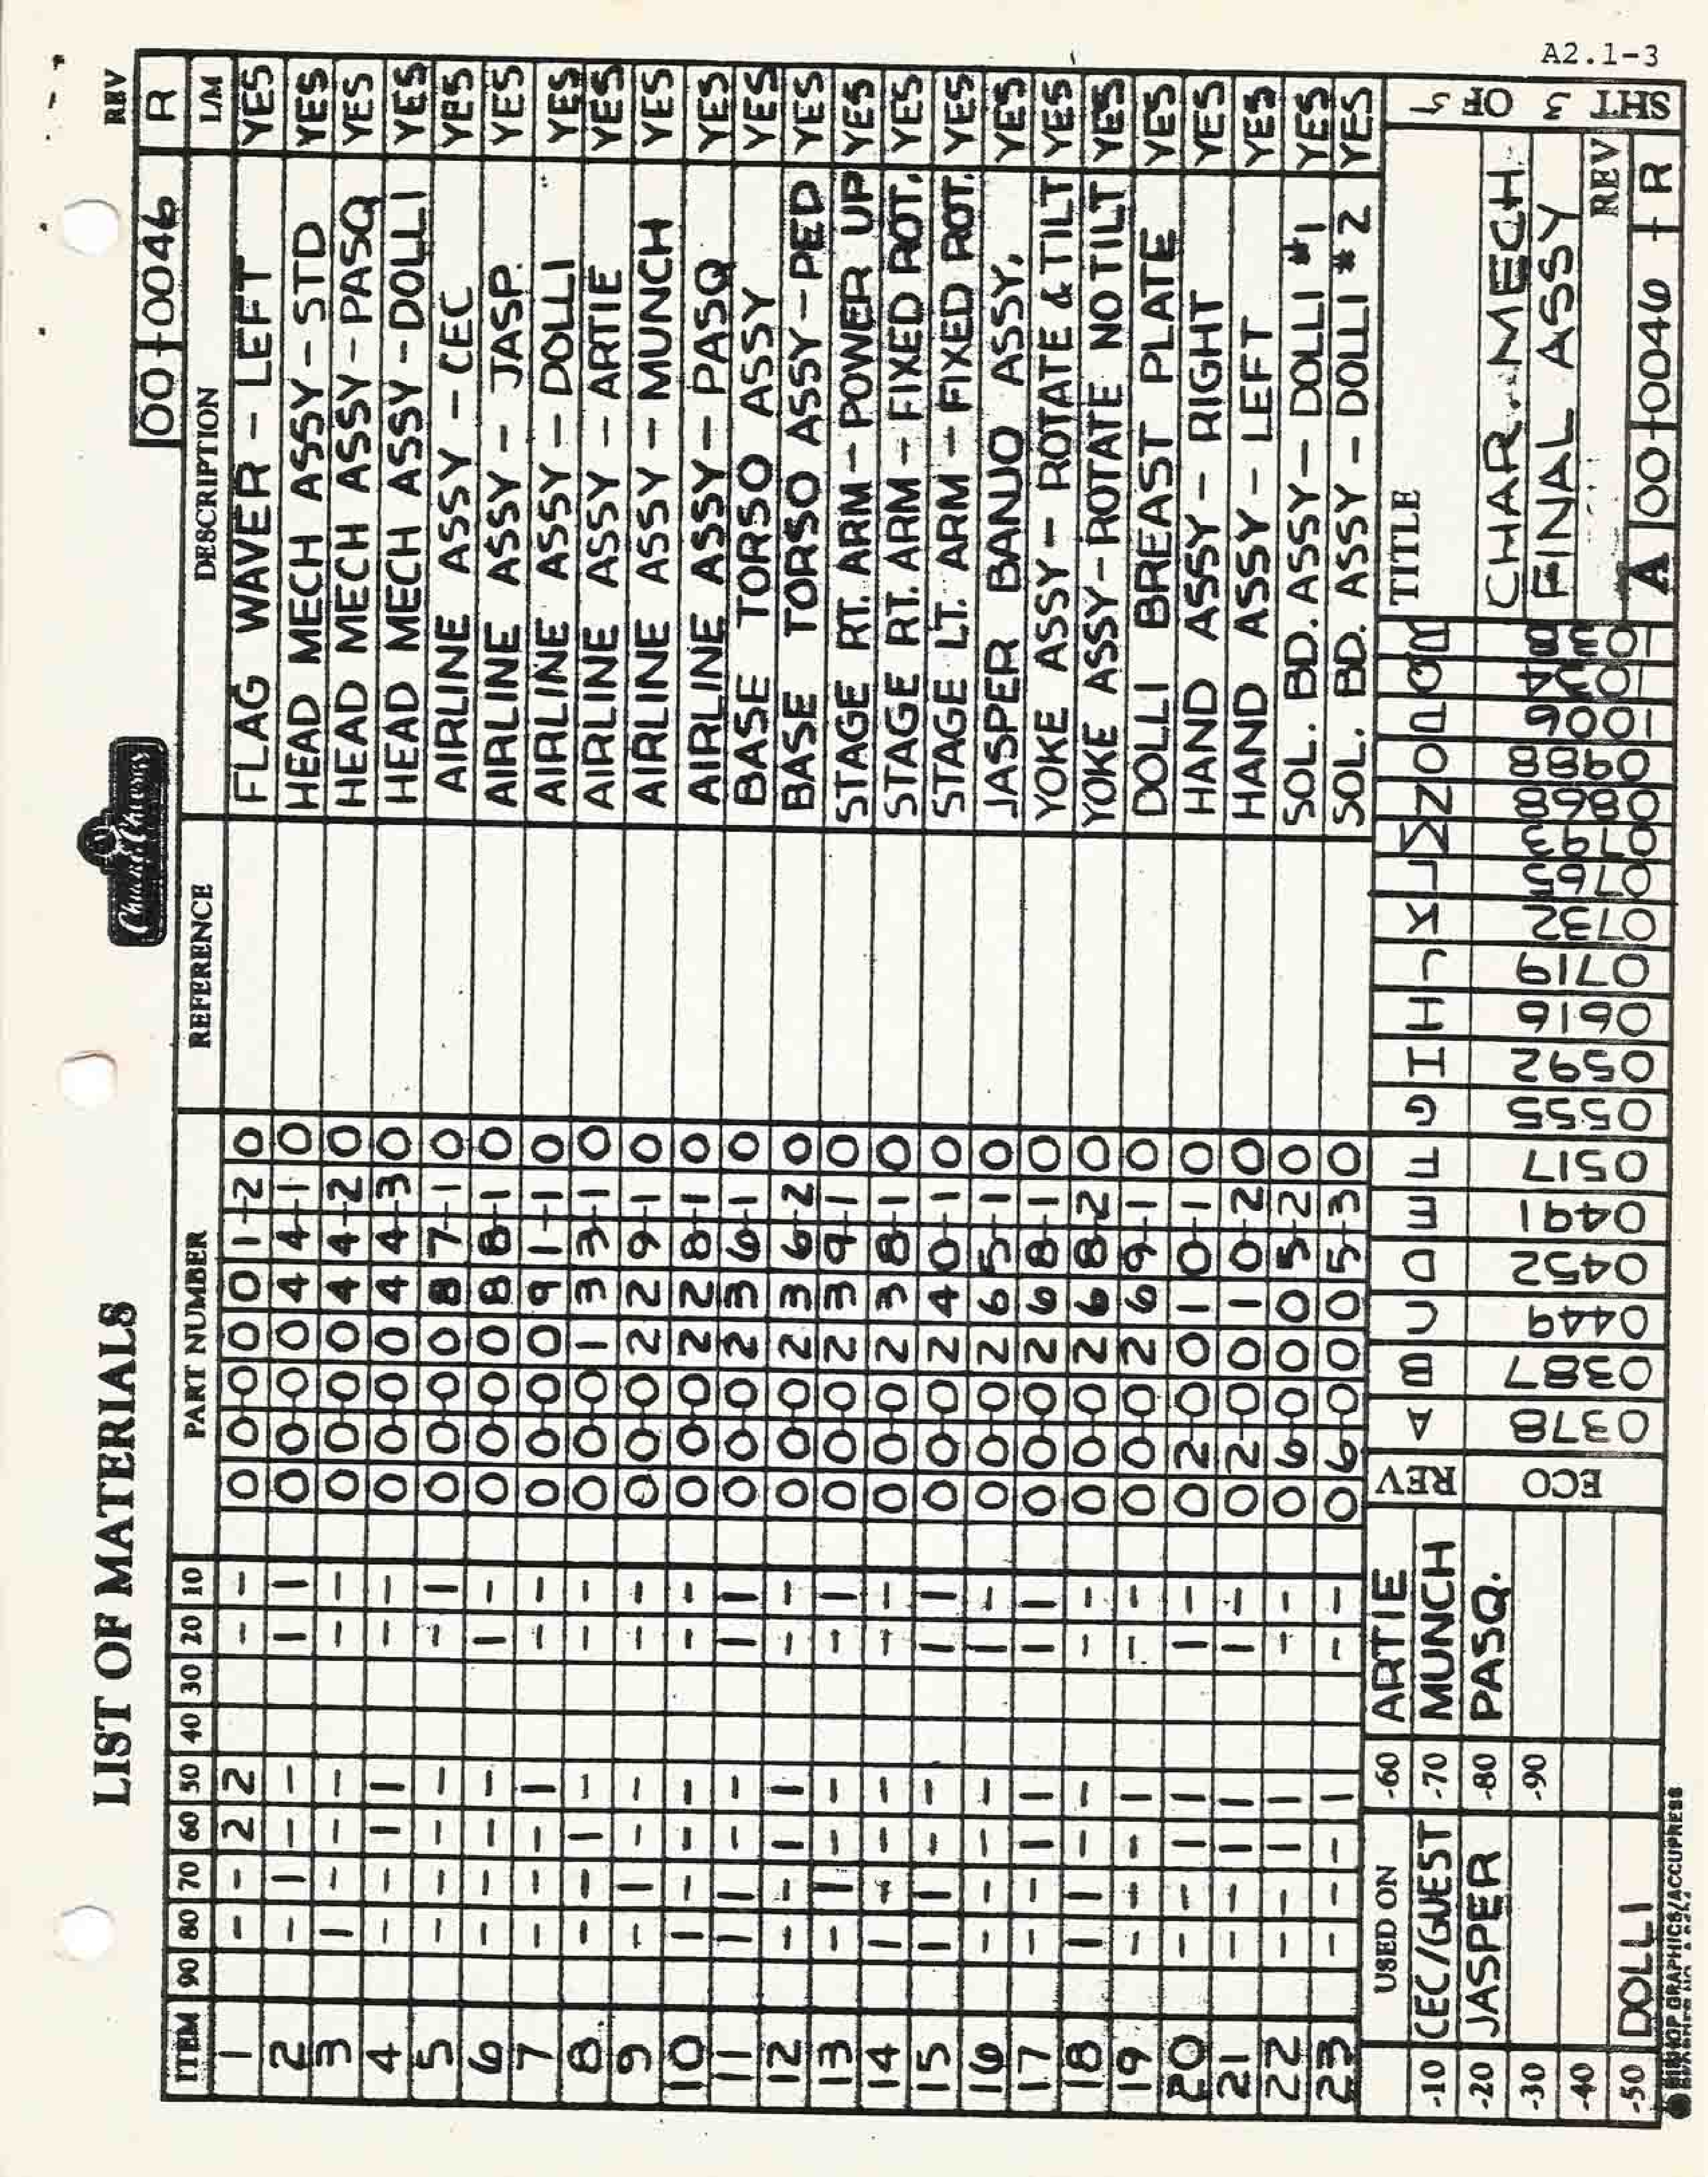 A2.1-3
LIST OF MATERIALS
Chuck E. Cheese's
00-0046 REV R
ITEM 90 80 70 60 50 40 30 20 10 PART NUMBER REFERENCE DESCRIPTION L/M
1 - - 2 2 - - 00-0001-20 FLAG WAVER - LEFT YES
2 - 1 - - 1 1 00-0044-10 HEAD MECH ASSY - STD YES
3 1 - - - - - 00-0044-20 HEAD MECH ASSY - PASQ YES
4 - - 1 1 - - 00-0044-30 HEAD MECH ASSY - DOLLI YES
5 - - - - - 1 00-0087-10 AIRLINE ASSY - CEC YES
6 - - - - 1 - 00-0088-10 AIRLINE ASSY - JASP. YES
7 - - - 1 - - 00-0091-10 AIRLINE ASSY - DOLLI YES
8 - - 1 - - - 00-0133-10 AIRLINE ASSY - ARTIE YES
9 - 1 - - - - 00-0229-10 AIRLINE ASSY - MUNCH YES
10 1 - - - - - 00-0228-10 AIRLINE ASSY - PASQ YES
11 1 1 - - 1 1 00-0236-10 BASE TORSO ASSY YES
12 - - 1 1 - - 00-0236-20 BASE TORSO ASSY - PED YES
13 - 1 - - - 1 00-0239-10 STAGE RT. ARM - POWER UP YES
14 1 - - - - - 00-0238-10 STAGE RT. ARM - FIXED ROT. YES
15 1 1 - - 1 1 00-0240-10 STAGE LT. ARM - FIXED ROT. YES
16 - - - - 1 - 00-0265-10 JASPER BANJO ASSY. YES
17 - - 1 1 1 1 00-0268-10 YOKE ASSY - ROTATE & TILT YES
18 1 1 - - - - 00-0268-20 YOKE ASSY - ROTATE NO TILT YES
19 - - - 1 - - 00-0269-10 DOLLI BREAST PLATE YES
20 - - 1 1 1 - 02-0010-10 HAND ASSY - RIGHT YES
21 - - 1 1 1 - 02-0010-20 HAND ASSY - LEFT YES
22 - - 1 1 - - 06-0005-20 SOL. BD. ASSY - DOLLI #1 YES
23 - - - 1 - - 06-0005-30 SOL. BD. ASSY - DOLLI #2 YES
USED ON
-10 CEC/GUEST
-20 JASPER
-30
-40
-50 DOLLI
-60 ARTIE
-70 MUNCH
-80 PASQ.
-90
REV A B C D E F G I H J K L M N O P Q R
ECO 0378 0387 0449 0452 0491 0517 0555 0592 0616 0719 0732 0765 0793 0868 0988 1006 1034 1038
TITLE
CHAR. MECH.
FINAL ASSY
REV
A 00-0046 - R
SHT 3 OF 5
BISHOP GRAPHICS/ACCUPRESS